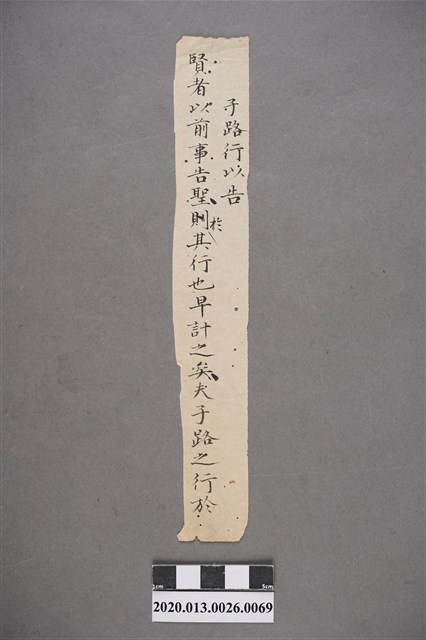 子路行以告
賢者以前事告聖則於其行也早計之矣夫子路之行於
cm
5cm
2020.013.0026.0069